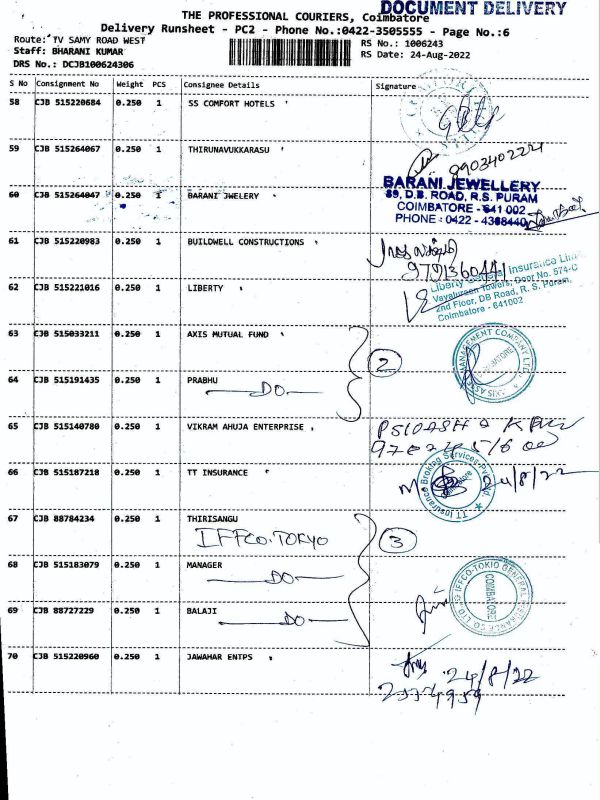 DOCUMENT DELIVERY
THE PROFESSIONAL COURIERS, Coimbatore
Delivery Runsheet - PC2 - Phone No.:0422-3505555 - Page No.:6
Route: TV SAMY ROAD WEST
Staff: BHARANI KUMAR
DRS No.: DCJB100624306
RS No.: 1006243
RS Date: 24-Aug-2022
S No Consignment No Weight PCS Consignee Details Signature
58 CJB 515220684 0.250 1 SS COMFORT HOTELS
59 CJB 515264067 0.250 1 THIRUNAVUKKARASU
60 CJB 515264047 0.250 1 BARANI JWELERY
BARANI JEWELLERY
89, D.B. ROAD, R.S. PURAM
COIMBATORE - 641 002
PHONE : 0422 - 4368440
61 CJB 515220983 0.250 1 BUILDWELL CONSTRUCTIONS
9791360441
62 CJB 515221016 0.250 1 LIBERTY
Liberty General Insurance Lim
Towers, Door No. 574-C
2nd Floor, DB Road, R. S. Puram,
Coimbatore - 641002
63 CJB 515033211 0.250 1 AXIS MUTUAL FUND
2
64 CJB 515191435 0.250 1 PRABHU
DO
65 CJB 515140780 0.250 1 VIKRAM AHUJA ENTERPRISE
66 CJB 515187218 0.250 1 TT INSURANCE
TT Insurance Broking Services Pvt Ltd
24/8/22
67 CJB 88784234 0.250 1 THIRISANGU
IFFCO.TOKYO
3
68 CJB 515183079 0.250 1 MANAGER
DO
IFFCO-TOKIO GENERAL INSURANCE CO LTD
COIMBATORE
69 CJB 88727229 0.250 1 BALAJI
DO
70 CJB 515220960 0.250 1 JAWAHAR ENTPS
24/8/22